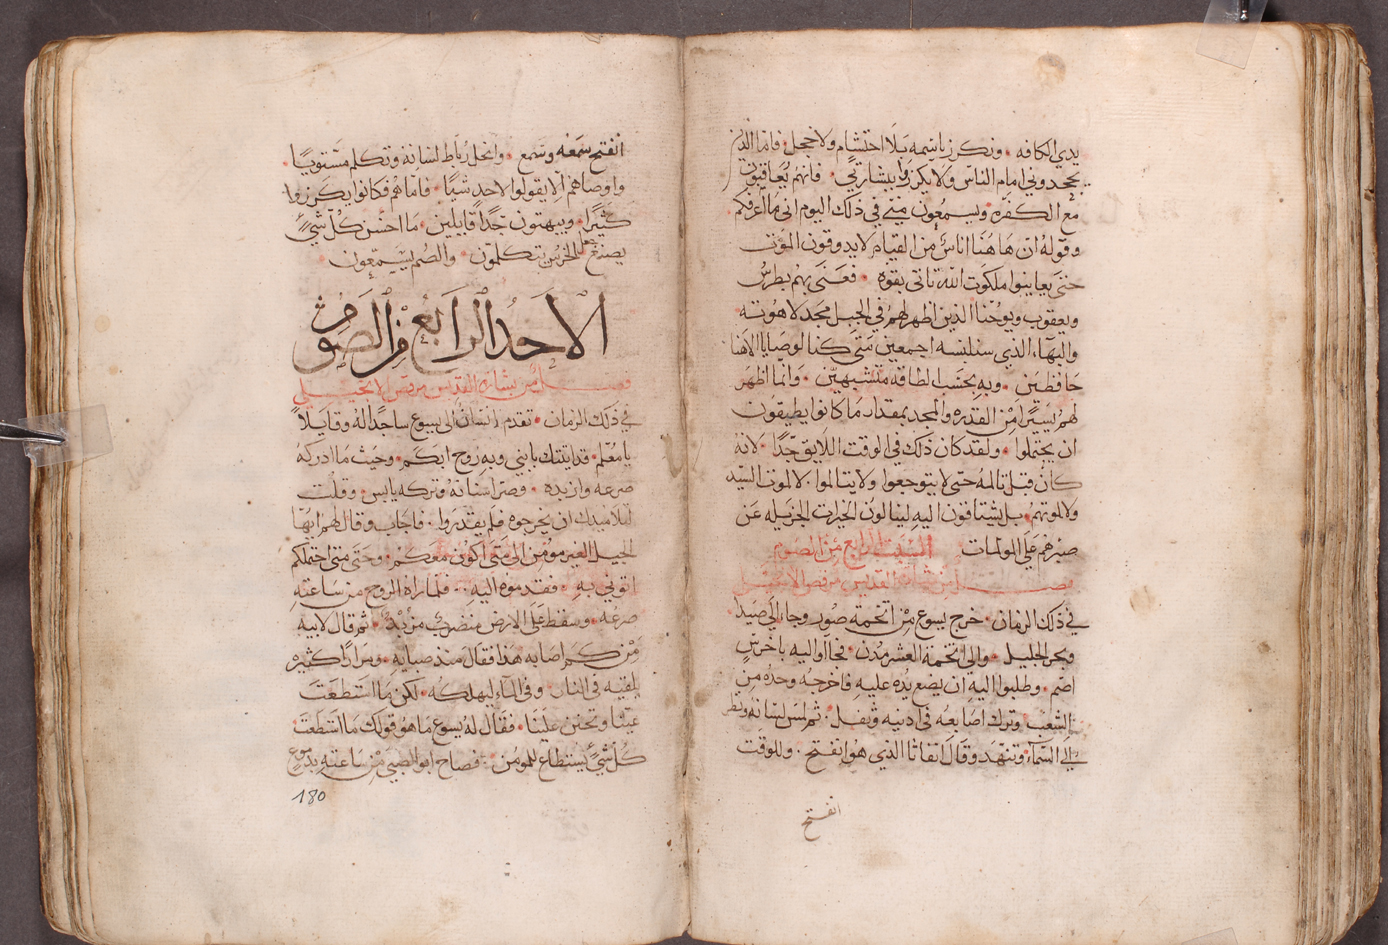 يدي الكافه • ونكرز باسمه بلا احتشام ولا خجل • فاما الذين
يجحدوني امام الناس ولا يكرزوا ببشارتي • فانهم يعاقبون
مع الكفره ويسمعون مني في ذلك اليوم اني ما اعرفكم •
وقوله ان هاهنا اناس من القيام لا يدوقون الموت
حتى يعاينوا ملكوت الله تاتي بقوه • فعنى بهم بطرس
ويعقوب ويوحنا الذين اظهر لهم في الجبل مجد لاهوته •
والبهاء الذي سنلبسه اجمعين متى كنا لوصايا الاهنا
حافظين • وبه بحسب الطاقه متشبهين • وانما اظهر
لهم يسيرا من القدره والمجد بمقدار ما كانوا يطيقون
ان يحتملوا • ولقد كان ذلك في الوقت اللايق جدا • لانه
كان قبل تالمه حتى لا يتوجعوا ولا يتالموا • لا لموت السيد
ولا لموتهم • بل يشتاقون اليه لينالون الخيرات الجزيله عن
صبرهم على المولمات السبت الرابع من الصوم
فصل من بشارة القديس مرقص الانجيلي
في ذلك الزمان • خرج يسوع من اتخمة صور وجا الى صيدا •
وبحر الجليل • والى اتخمة العشر مدن • فجاوا اليه باخرس
اصم • وطلبوا اليه ان يضع يده عليه فاخرجه وحده من
الشعب • وترك اصابعه في ادنيه وتفل • ثم لمس لسانه ونظر
الى السماء وتنهد وقال اتفاثا الذي هو انفتح • وللوقت
انفتح
انفتح سمعه وسمع • وانحل رباط لسانه وتكلم مستويا •
واوصاهم الا يقولوا لاحد شيا • فاما هم فكانوا يكرزوا
كثيرا • ويبهتون جدا قايلين • ما احسن كل شيء
يصنع جعل الخرس يتكلمون • والصم يسمعون •
الاحد الرابع من الصوم
فصل من بشارة القديس مرقص الانجيلي
في ذلك الزمان • تقدم انسان الى يسوع ساجدا له وقايلا
يا معلم • قد اتيتك بابني وبه روح ابكم • وحيث ما ادركه
صرعه وازبده • فصر اسنانه وتركه يابس • وقلت
لتلاميدك ان يخرجوه فلم يقدروا • فاجاب وقال لهم ايها
الجيل الغير مومن الى متى اكون معكم • وحتى متى احتملكم
اتوني به • فقدموه اليه • فلما راه الروح من ساعته
صرعه • وسقط على الارض مضطرب مزبد • ثم قال لابيه
من كم اصابه هذا فقال منذ صبايه • ومرارا كثيره
يلقيه في النار • وفي الماء ليهلكه • لكن ما استطعت
عينا وتحنن علينا • فقال له يسوع ما هو قولك ما استطعت
كل شيء يستطاع للمومن • فصاح ابو الصبي من ساعته بدموع
180